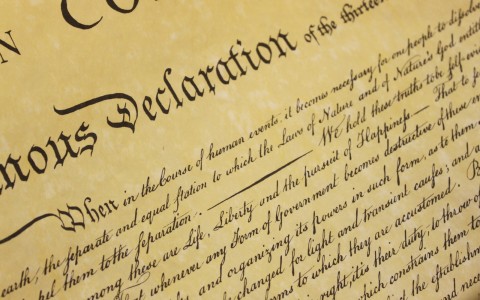 N CO
mous Declaration of the thirteen
When in the Course of human events, it becomes necessary for one people to dissolve
earth, the separate and equal station to which the Laws of Nature and of Nature's God entitle
them to the separation. — We hold these truths to be self-evi
among these are Life, Liberty and the pursuit of Happiness. — That to se
whenever any Form of Government becomes destructive of these en
and organizing its powers in such form, as to them s
changed for light and transient causes; and a
forms to which they are accustomed. B
right, it is their duty, to throw of
which constrains them to
the establishment